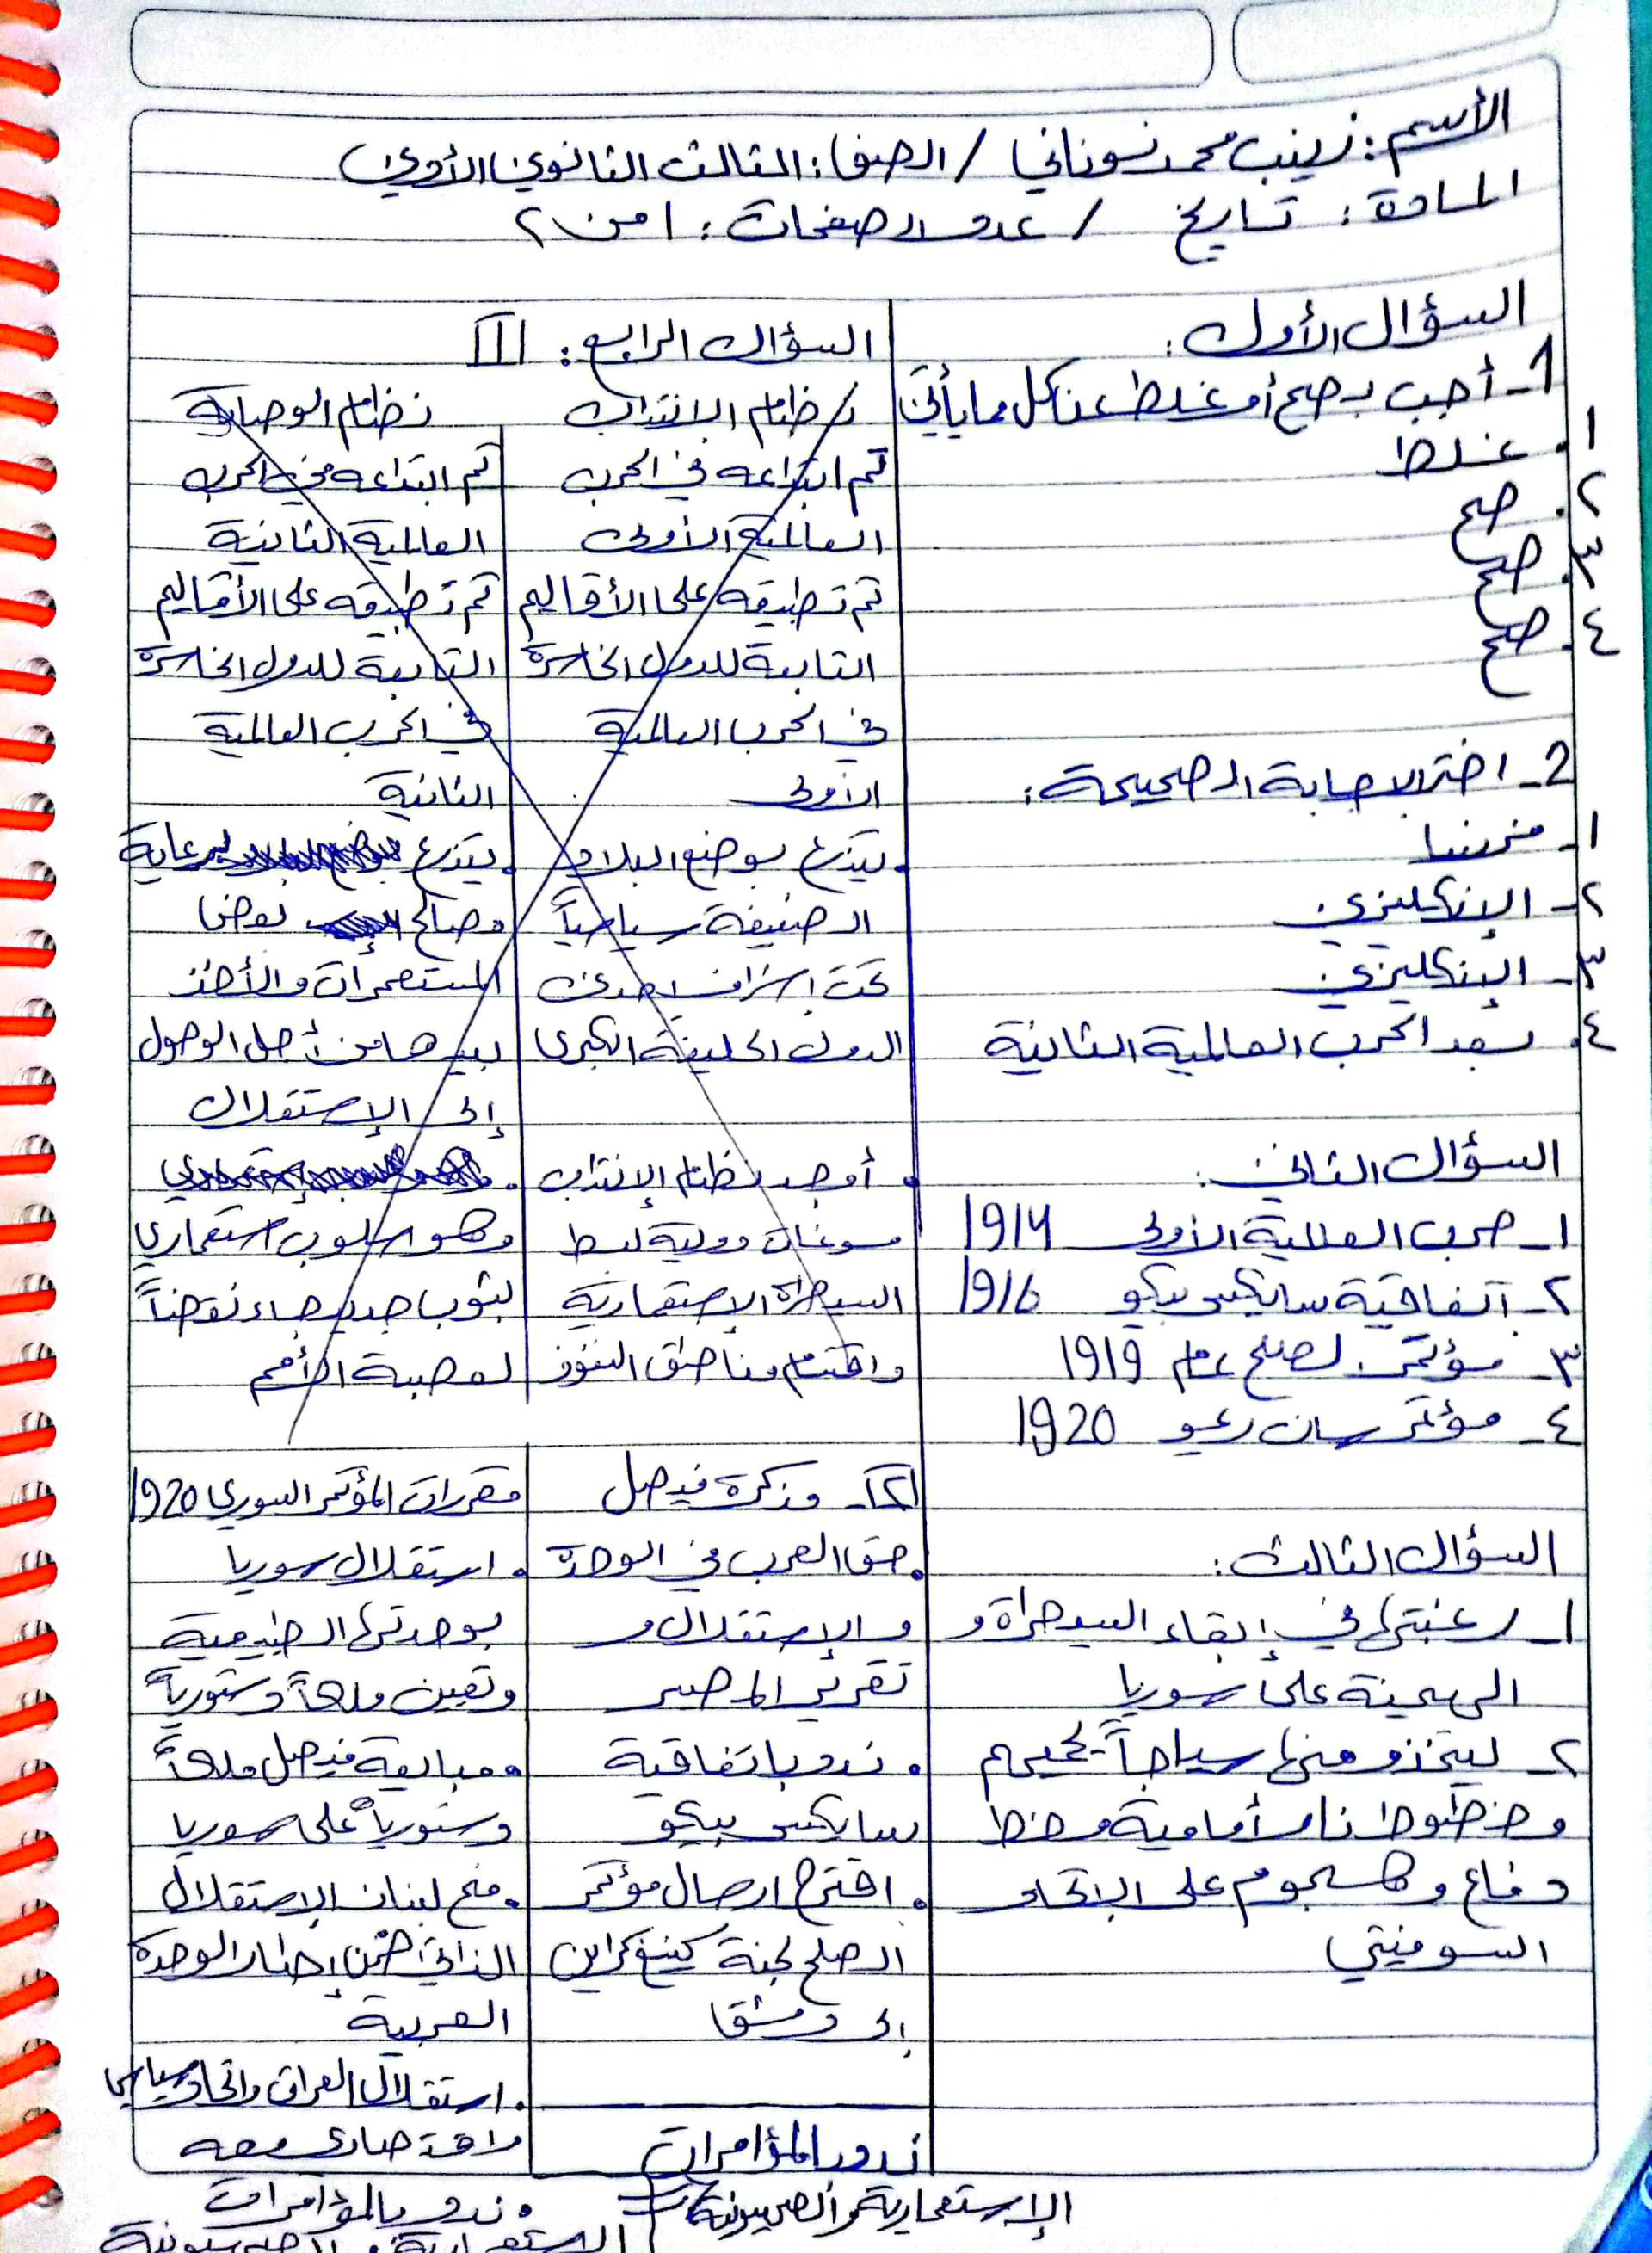 الأسم: زينب محمد نسوناني / الصف: الثالث الثانوي الأدبي
المادة: تاريخ / عدد الصفحات: ١ من ٢
السؤال الأول:
1- أجب بصح أو غلط عن كل مما يأتي
١. غلط
٢. صح
٣. صح
٤. صح
2- اختر الإجابة الصحيحة:
١- فرنسا
٢- الإنكليزي
٣- الإنكليزي
٤. بعد الحرب العالمية الثانية
السؤال الثاني:
١- حرب العالمية الأولى 1914
٢- اتفاقية سايكس بيكو 1916
٣- مؤتمر الصلح عام 1919
٤- مؤتمر سان ريمو 1920
السؤال الثالث:
١- رغبتها في إبقاء السيطرة و
الهيمنة على سوريا
٢- ليتخذو منها سياجاً يحميهم
وخطوط نار أمامية وخط
دفاع وهجوم على الاتحاد
السوفيتي
السؤال الرابع:
نظام الانتداب
تم ابتداعه في الحرب
العالمية الأولى
تم تطبيقه على الأقاليم
التابعة للدول الخاسرة
في الحرب العالمية
الأولى
. يتذرع بوضع البلاد
الضعيفة سياسياً
تحت إشراف إحدى
الدول الحليفة الكبرى
. أوجد نظام الإنتداب
مسوغات دولية لبسط
السيطرة الإستعمارية
واقتسام مناطق النفوذ
نظام الوصاية
تم ابتداعه في الحرب
العالمية الثانية
تم تطبيقه على الأقاليم
التابعة للدول الخاسرة
في الحرب العالمية
الثانية
. يتذرع برعاية
مصالح بعض
المستعمرات والأخذ
بيدها من أجل الوصول
إلى الإستقلال
وهو اسلوب استعماري
بثوب جديد جاء نقضاً
لعصبة الأمم
مذكرة فيصل
. حق العرب في الوحدة
والإستقلال و
تقرير المصير
. ندد باتفاقية
سايكس بيكو
. اقترح ارسال مؤتمر
الصلح لجنة كينغ كراين
إلى دمشق
ندد بالمؤامرات
الإستعمارية والصهيونية
مقررات المؤتمر السوري 1920
. استقلال سوريا
بوحدتها الطبيعية
وتعين ملكاً دستورياً
. مبايعة فيصل ملكاً
دستورياً على سوريا
. منح لبنان الإستقلال
الذاتي ضمن إطار الوحدة
العربية
. استقلال العراق واتحاد سياسي
واقتصادي معه
. ندد بالمؤامرات